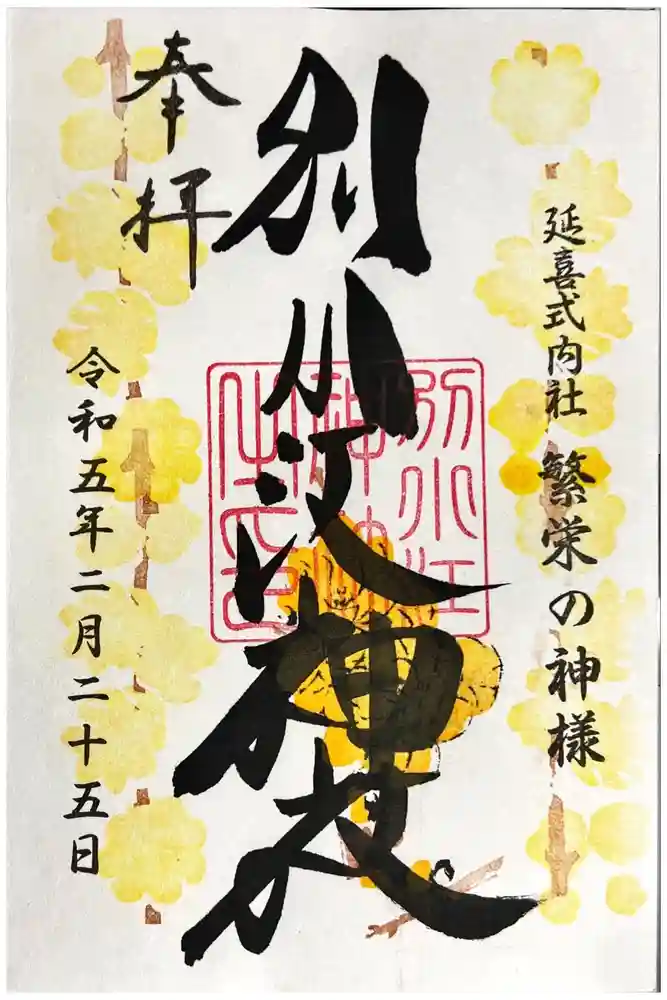 延喜式内社 繁栄の神様
別小江神社
奉拝
令和五年二月二十五日
別小江